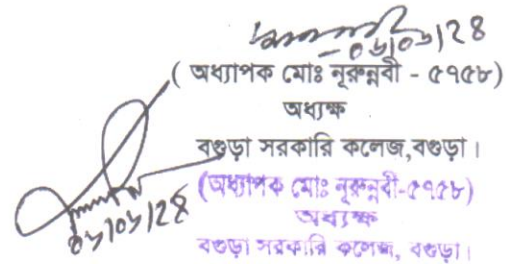 ০১/০১/২৪
( অধ্যাপক মোঃ নূরুন্নবী - ৫৭৫৮)
অধ্যক্ষ
বগুড়া সরকারি কলেজ,বগুড়া।
(অধ্যাপক মোঃ নূরুন্নবী-৫৭৫৮)
অধ্যক্ষ
বগুড়া সরকারি কলেজ, বগুড়া।
০১/০১/২৪